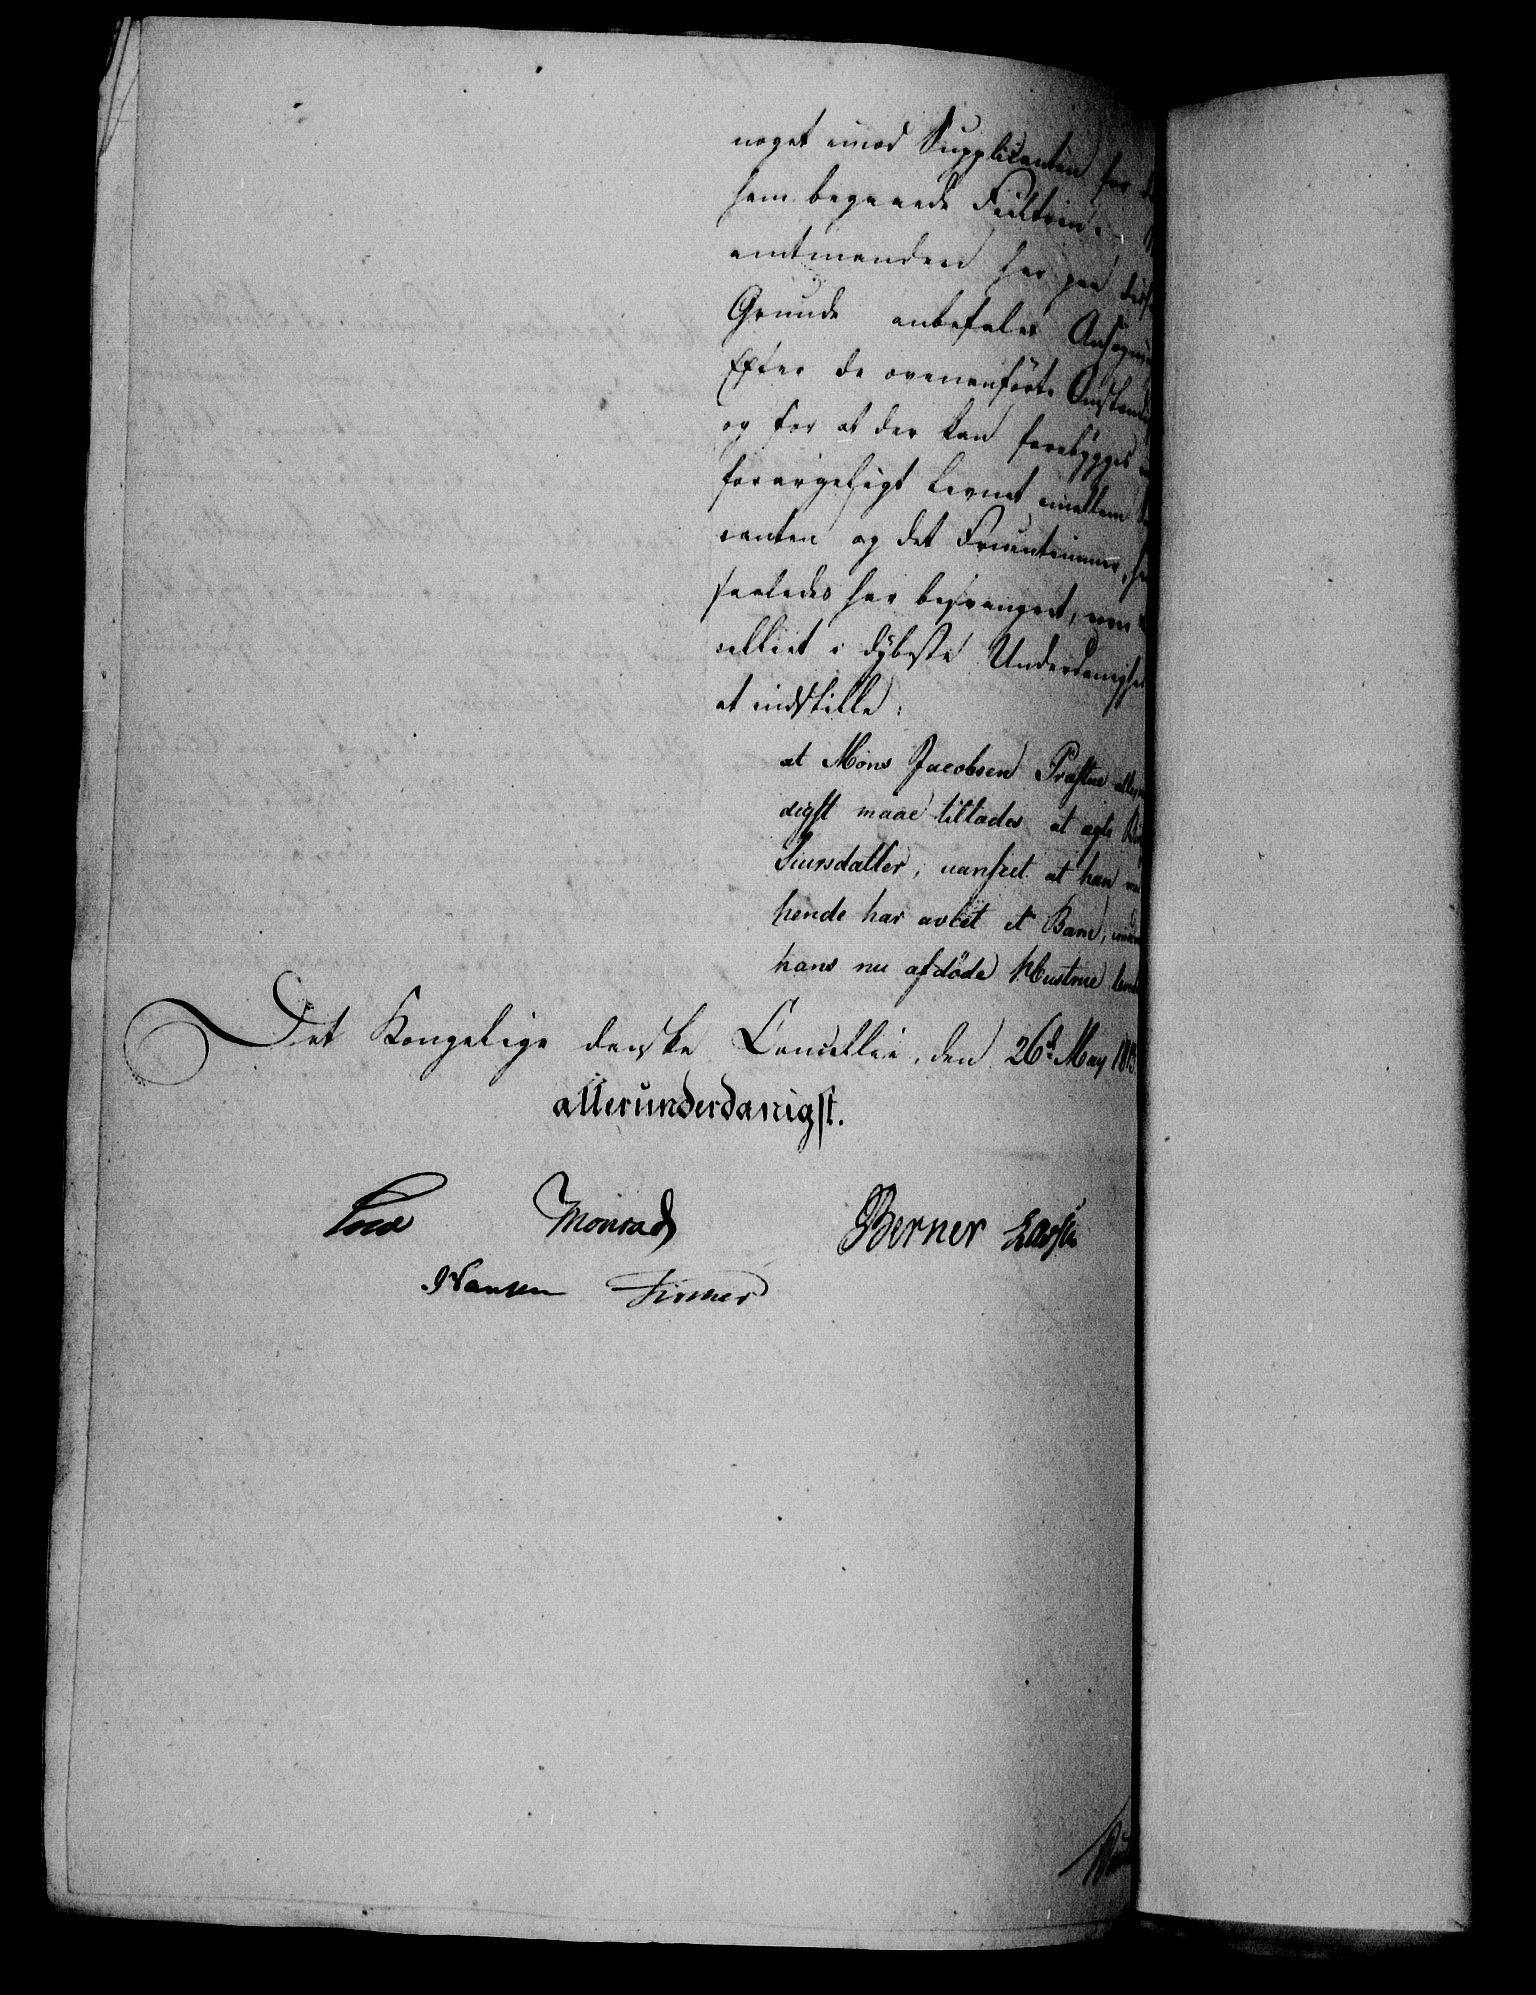 noget imod Supplicanten for
ham begaaede Feiltrin.
amtmanden har paa disse
Grunde anbefalet Ansøgnin
Efter de ovenanførte Omstændig
og for at der kan forebygges
forargeligt Levnet imellem
canten og det Fruentimmer,
saaledes har besvangret,
celliet i dybeste Underdanighed
at indstille:
at Mons Jacobsen Præstue aller
digst maae tillades at ægte
Siursdatter, uanseet at han
hende har avlet et Barn,
hans nu afdøde Hustrue
Det Kongelige danske Cancellie, den 26d May 181
allerunderdanigst.
Monrad Berner
Hansen